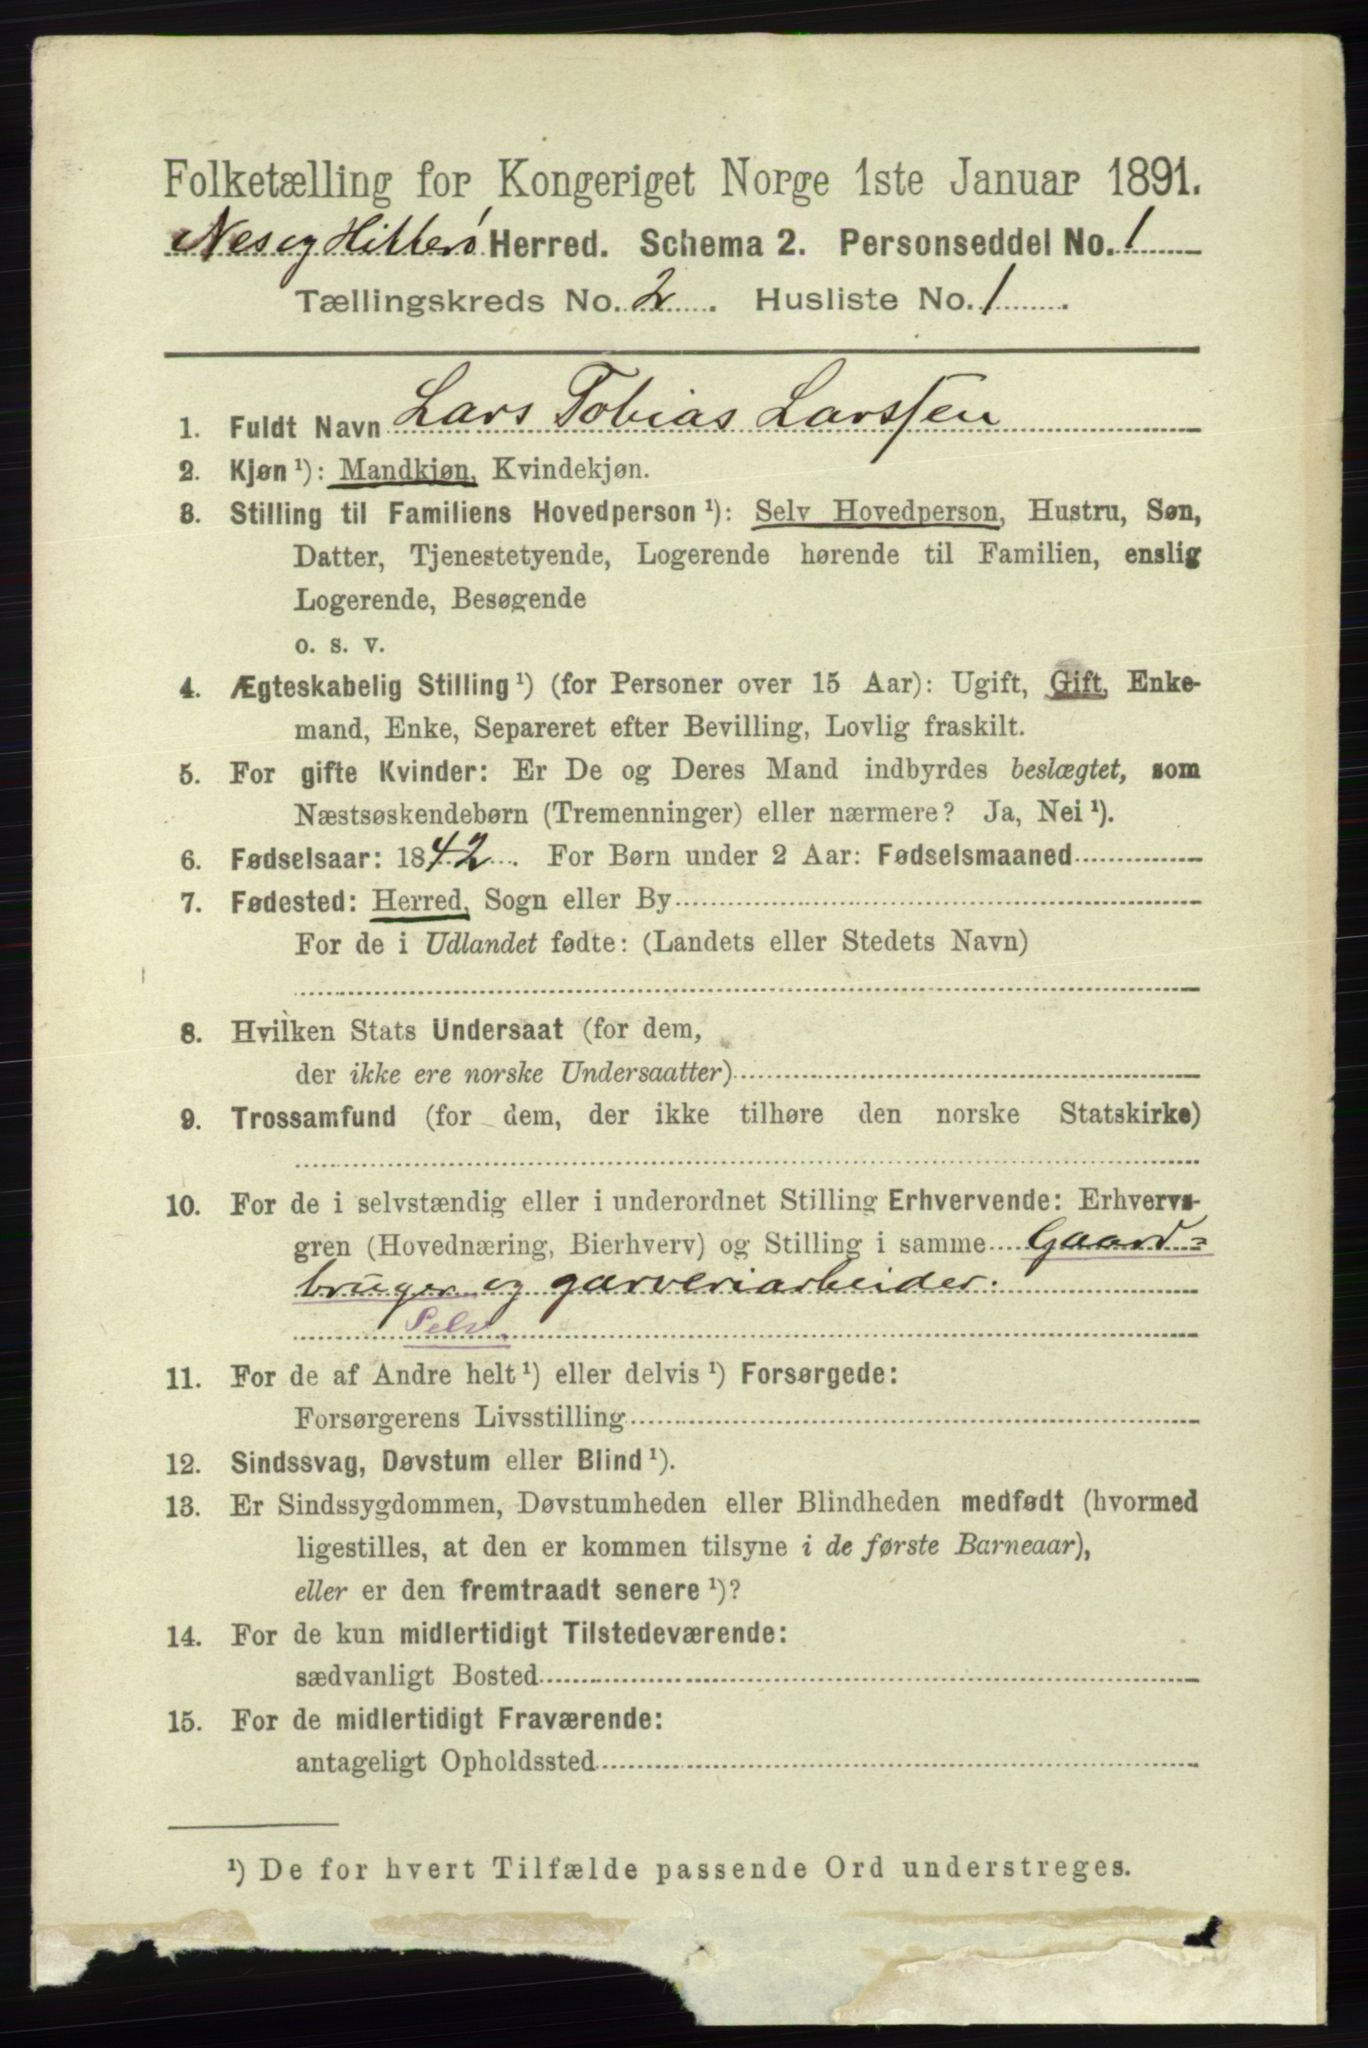 Folketælling for Kongeriget Norge 1ste Januar 1891.
Nes og Hitterø Herred. Schema 2. Personseddel No. 1
Tællingskreds No. 2. Husliste No. 1.
1. Fuldt Navn Lars Tobias Larssen
2. Kjøn ¹): Mandkjøn, Kvindekjøn.
3. Stilling til Familiens Hovedperson ¹): Selv Hovedperson, Hustru, Søn,
Datter, Tjenestetyende, Logerende hørende til Familien, enslig
Logerende, Besøgende
o. s. v.
4. Ægteskabelig Stilling ¹) (for Personer over 15 Aar): Ugift, Gift, Enke-
mand, Enke, Separeret efter Bevilling, Lovlig fraskilt.
5. For gifte Kvinder: Er De og Deres Mand indbyrdes beslægtet, som
Næstsøskendebørn (Tremenninger) eller nærmere? Ja, Nei ¹).
6. Fødselsaar: 1842. For Børn under 2 Aar: Fødselsmaaned
7. Fødested: Herred, Sogn eller By
For de i Udlandet fødte: (Landets eller Stedets Navn)
8. Hvilken Stats Undersaat (for dem,
der ikke ere norske Undersaatter)
9. Trossamfund (for dem, der ikke tilhøre den norske Statskirke)
10. For de i selvstændig eller i underordnet Stilling Erhvervende: Erhvervs-
gren (Hovednæring, Bierhverv) og Stilling i samme Gaard=
bruger og garveriarbeider.
Selv.
11. For de af Andre helt ¹) eller delvis ¹) Forsørgede:
Forsørgerens Livsstilling
12. Sindssvag, Døvstum eller Blind ¹).
13. Er Sindssygdommen, Døvstumheden eller Blindheden medfødt (hvormed
ligestilles, at den er kommen tilsyne i de første Barneaar),
eller er den fremtraadt senere ¹)?
14. For de kun midlertidigt Tilstedeværende:
sædvanligt Bosted
15. For de midlertidigt Fraværende:
antageligt Opholdssted
¹) De for hvert Tilfælde passende Ord understreges.